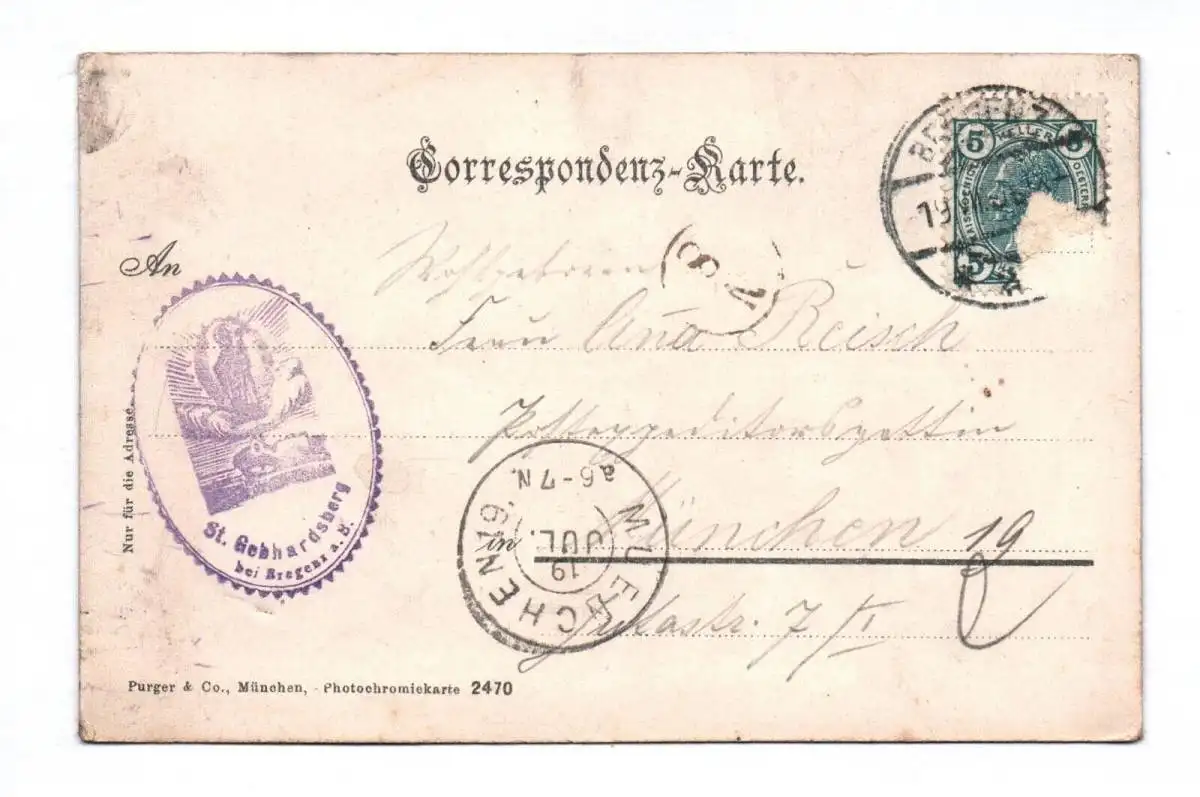 Correspondenz-Karte.
BREGENZ
19
5 HELLER 5
5
An
Wohlgeboren
8 V
Frau Anna Reisch
Postexpeditorsgattin
in München 19
MUENCHEN 19.
19
JUL.
a6-7 N.
7/I
Nur für die Adresse.
St. Gebhardsberg
bei Bregenz a. B.
Purger & Co., München, - Photochromiekarte 2470